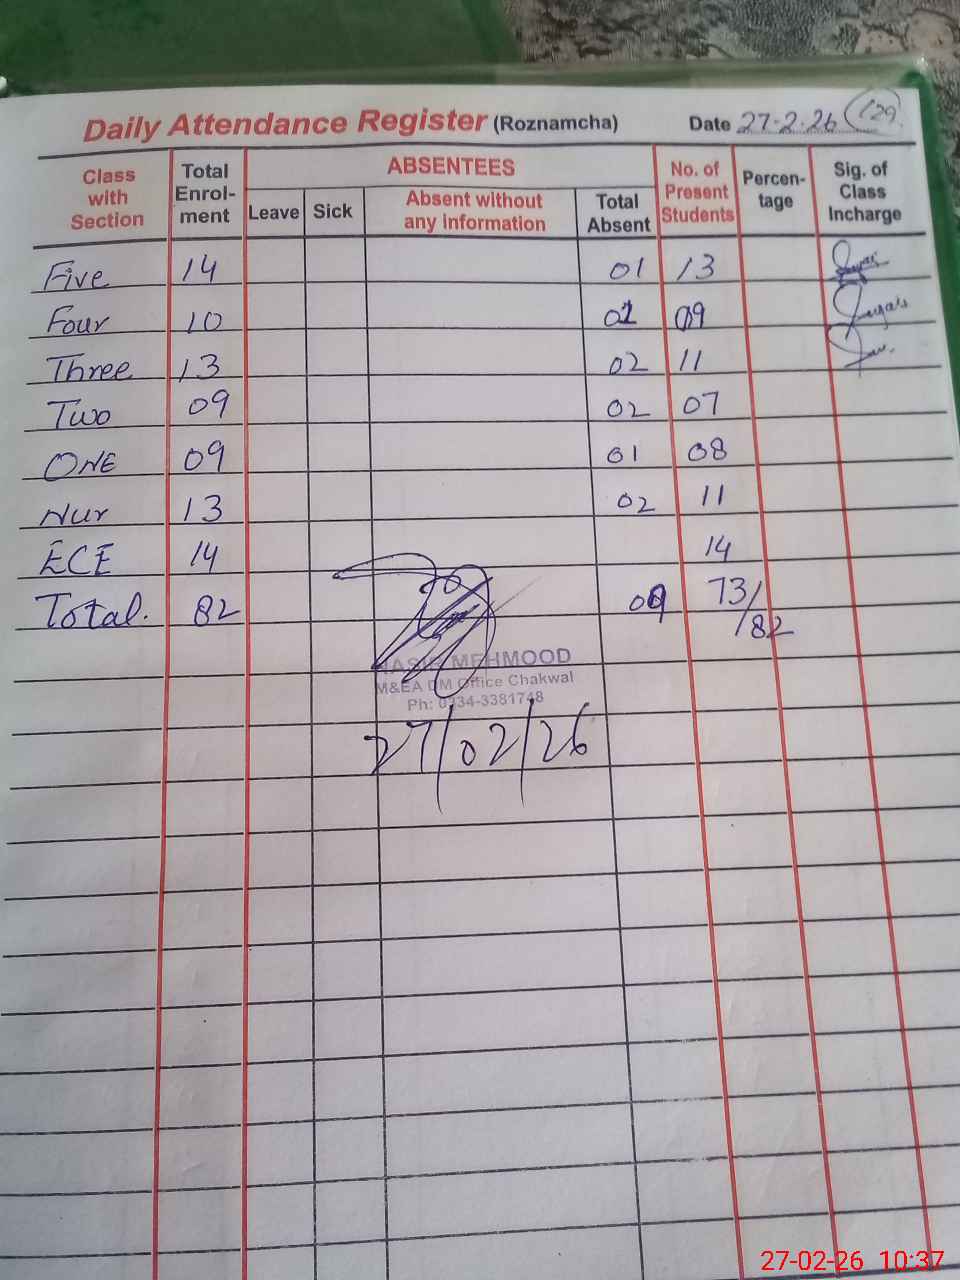 Daily Attendance Register (Roznamcha) Date 27-2-26 129
Class with Section Total Enrol-ment ABSENTEES No. of Present Students Percen-tage Sig. of Class Incharge
Leave Sick Absent without any information Total Absent
Five 14 01 13
Four 10 01 09
Three 13 02 11
Two 09 02 07
ONE 09 01 08
Nur 13 02 11
ECE 14 14
Total. 82 09 73/82
MEHMOOD
M&EA DM Office Chakwal
Ph: 0334-3381748
27/02/26
27-02-26 10:37